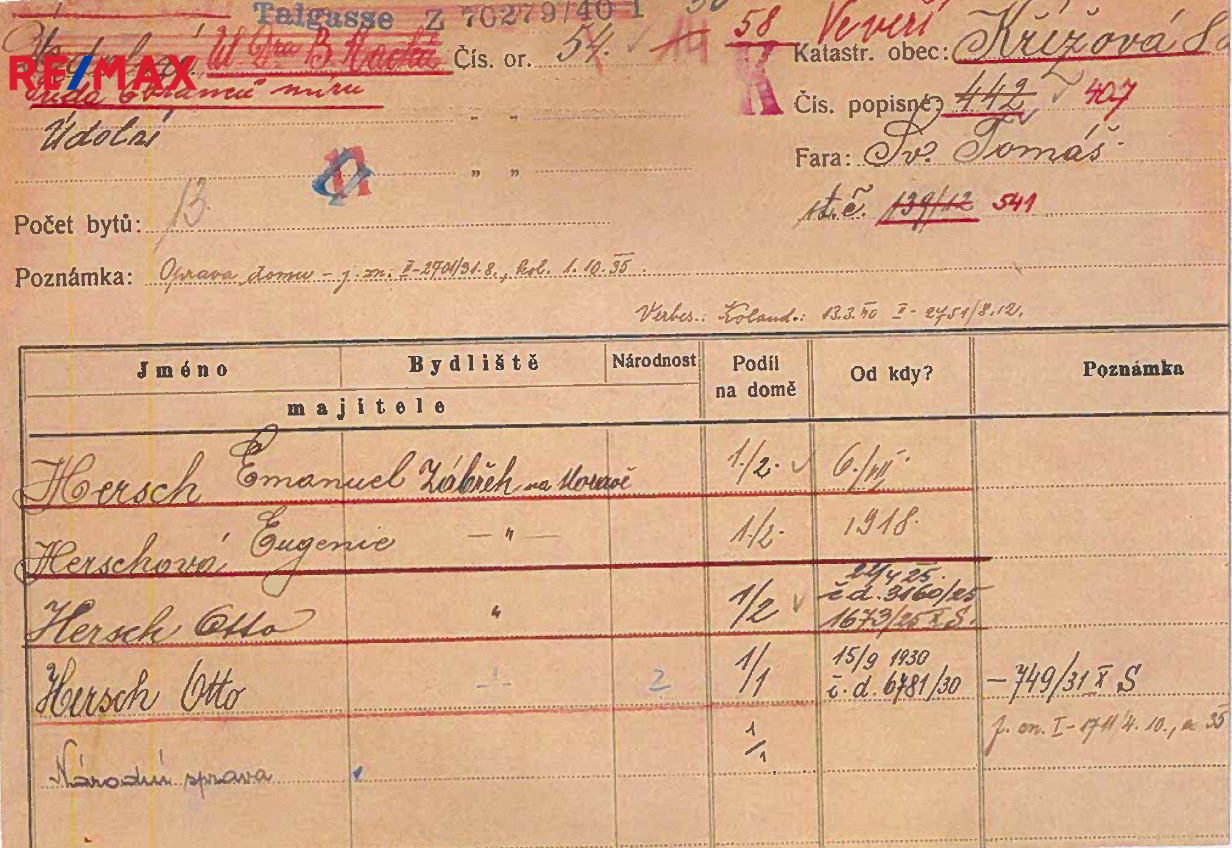 Talgasse Z 70279/40 I
58 Veveří
RE/MAX
Čís. or. 54. Katastr. obec: Křížová
třída obránců míru
Čís. popisné: 442 407
„ „
Údolní
Fara: Sv. Tomáš.
„ „
st. č. 139/12 541
Počet bytů: 13.
Poznámka: Oprava domu – j. zn. II-2701/31.8., kol. 1.10.35.
Koland.: 13.3.40 I-2751/8.12.
Jméno Bydliště Národnost Podíl na domě Od kdy? Poznámka
majitele
Hersch Emanuel Zábřeh na Moravě 1/2. 6./III.
Herschová Eugenie – „ – 1/2. 1918.
Hersch Otto „ 1/2 č.d. 3160/25
1673/25 X S.
Hersch Otto 2 1/1 15/9 1930
č.d. 6781/30 – 749/31 X S
1/1 j. zn. I-1711/4.10., 35
Národní správa